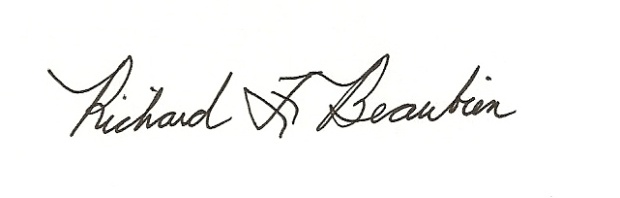 Richard F. Beaubien